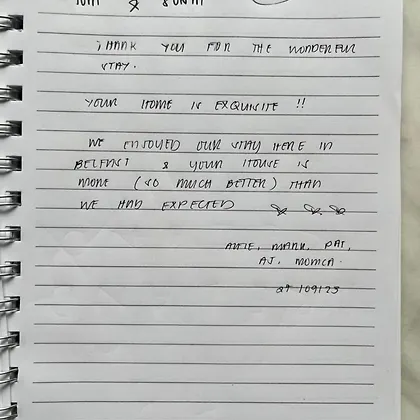 & 
THANK YOU FOR THE WONDERFUL
STAY.
YOUR HOME IS EXQUISITE !!
WE ENJOYED OUR STAY HERE IN
BELFAST & YOUR HOUSE IS
MORE (SO MUCH BETTER) THAN
WE HAD EXPECTED
MARK, PAT,
AJ, MONICA.
27/09/25